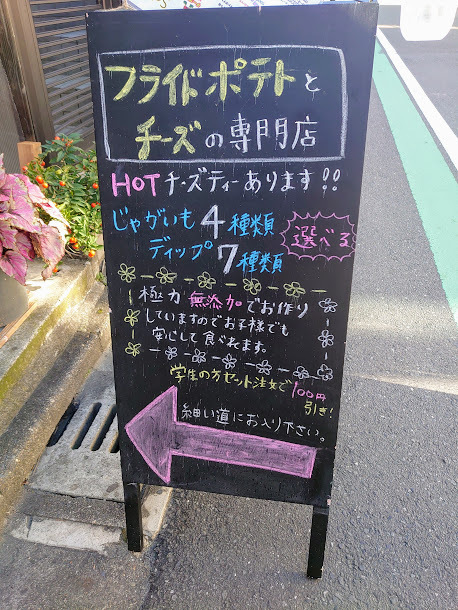 フライドポテトと
チーズの専門店
HOTチーズティーあります!!
じゃがいも4種類
ディップ7種類
選べる
極力無添加でお作り
していますのでお子様でも
安心して食べれます。
学生の方セット注文で100円
引き!
細い道にお入り下さい。